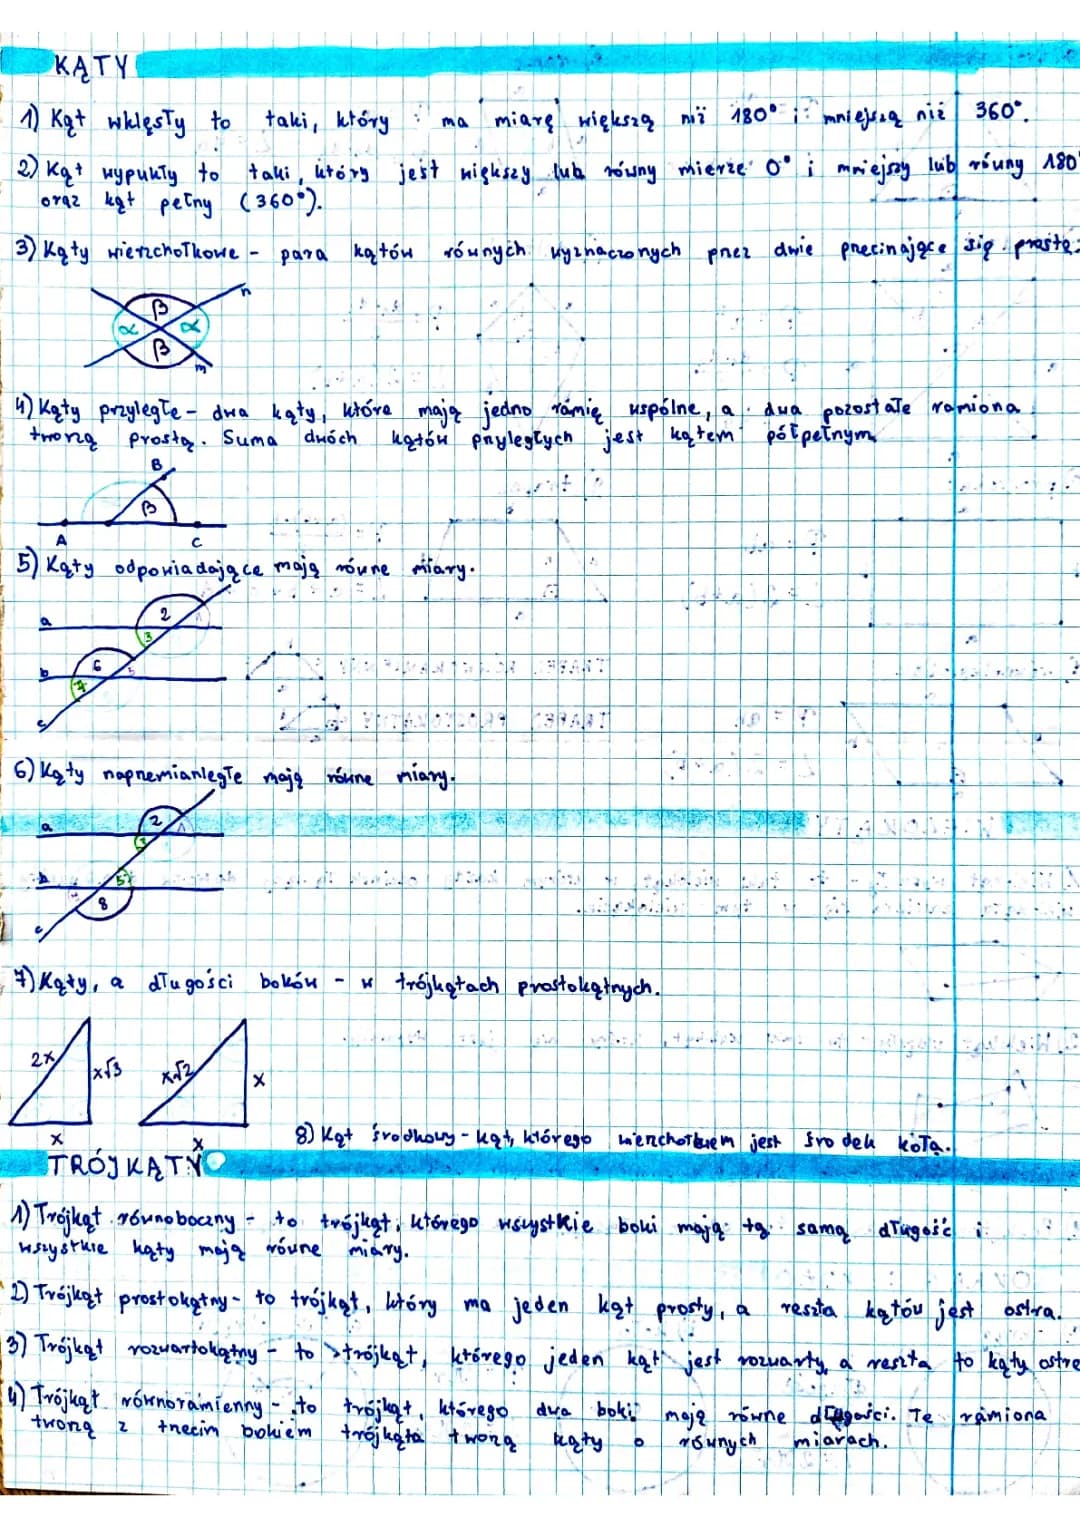 KĄTY
1) Kąt wklęsły to taki, który ma miarę większą niż 180° i mniejszą niż 360°.
2) Kąt wypukły to taki, który jest większy lub równy mierze 0° i mniejszy lub równy 180°
oraz kąt pełny (360°).
3) Kąty wierzchołkowe - para kątów równych wyznaczonych przez dwie przecinające się proste.
n
β
α α
β
m
4) Kąty przyległe - dwa kąty, które mają jedno ramię wspólne, a dwa pozostałe ramiona
tworzą prostą. Suma dwóch kątów przyległych jest kątem półpełnym
B
β
A C
5) Kąty odpowiadające mają równe miary.
2 1
a
3
b 6 5
7
c
6) Kąty naprzemianległe mają równe miary.
2
a 1
3
b 5
8
c
7) Kąty, a długości boków - w trójkątach prostokątnych.
2x x√3 x√2 x
x x
8) Kąt środkowy - kąt, którego wierzchołkiem jest środek koła.
TRÓJKĄTY
1) Trójkąt równoboczny - to trójkąt, którego wszystkie boki mają tą samą długość i
wszystkie kąty mają równe miary.
2) Trójkąt prostokątny - to trójkąt, który ma jeden kąt prosty, a reszta kątów jest ostra.
3) Trójkąt rozwartokątny - to trójkąt, którego jeden kąt jest rozwarty, a reszta to kąty ostre
4) Trójkąt równoramienny - to trójkąt, którego dwa boki mają równe długości. Te ramiona
tworzą z trzecim bokiem trójkąta tworzą kąty o równych miarach.